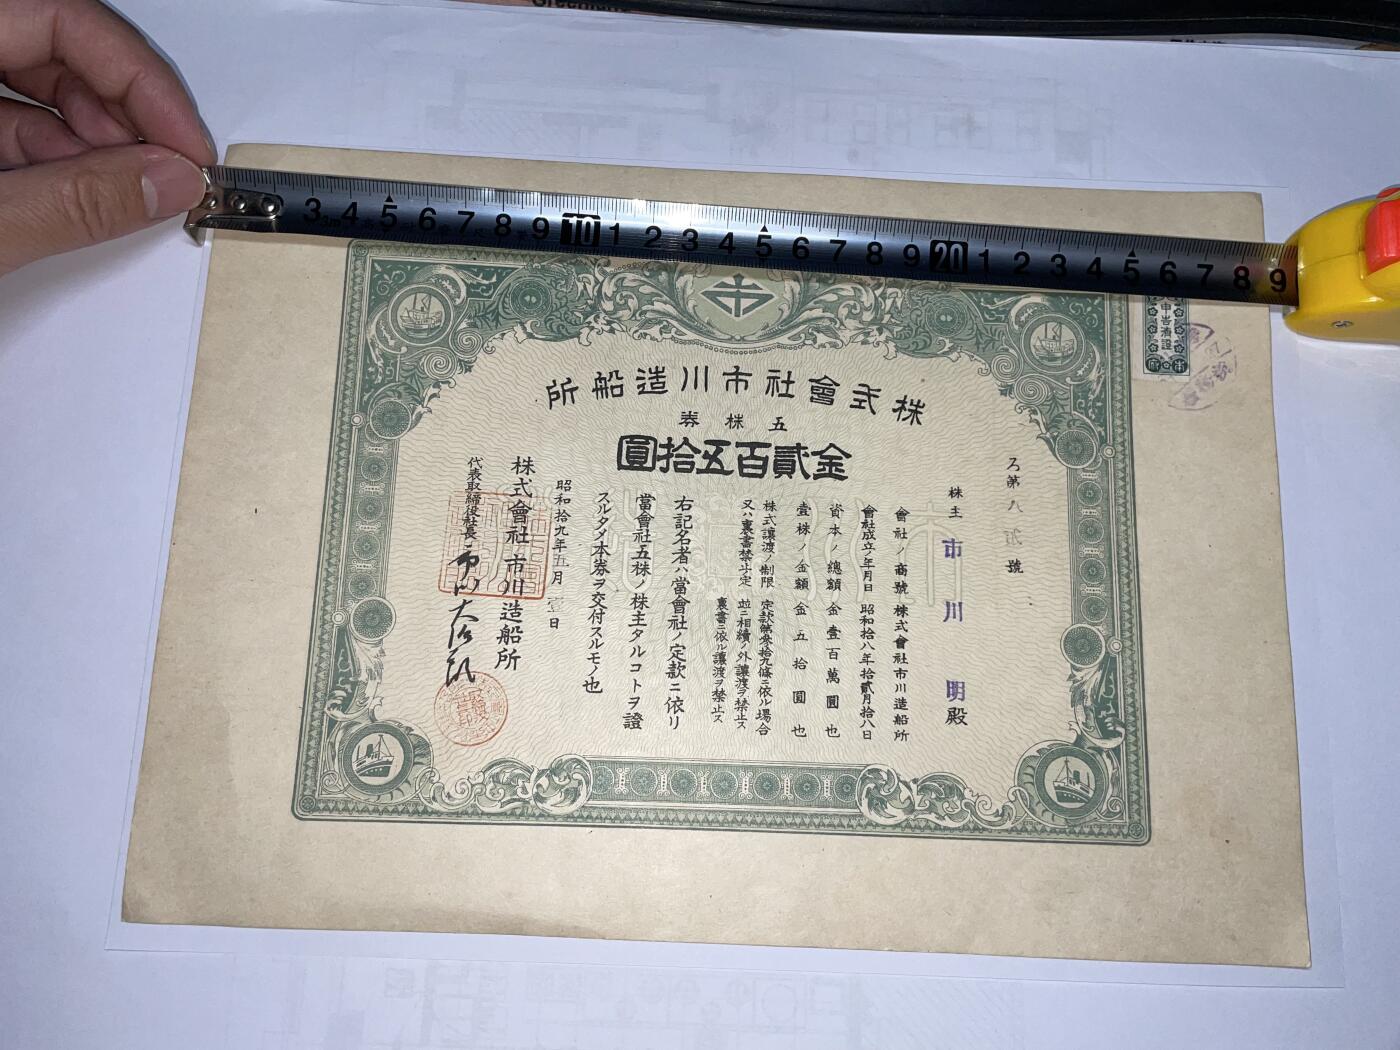 3 4 5 6 7 8 9 10 1 2 3 4 5 6 7 8 9 20 1 2 3 4 5 6 7 8 9
3m
株式會社市川造船所
五株券
金貳百五拾圓
ろ第八號
株主 市川明殿
會社ノ商號 株式會社市川造船所
會社成立ノ年月日 昭和拾八年拾貳月拾八日
資本ノ總額 金壹百萬圓也
壹株ノ金額 金五拾圓也
株式讓渡ノ制限 定款第參拾九條ニ依ル場合
又ハ裏書禁止定 並ニ相續ノ外讓渡ヲ禁止ス
裏書ニ依ル讓渡ヲ禁止ス
右記名者ハ當會社ノ定款ニ依リ
當會社五株ノ株主タルコトヲ證
スルタメ本券ヲ交付スルモノ也
昭和拾九年五月壹日
株式會社市川造船所
代表取締役社長 市川